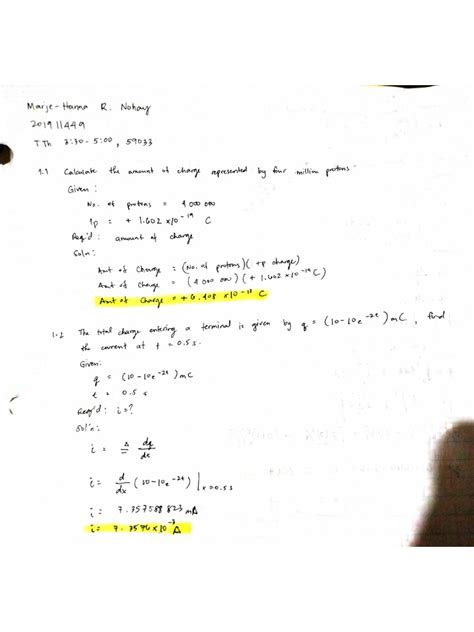 Marje-Hanna R. Nohay
201911449
TTh 3:30-5:00, 59033
1.1 Calculate the amount of charge represented by four million protons.
Given:
No. of protons = 4 000 000
1p = + 1.602 x10⁻¹⁹ C
Req'd: amount of charge
Soln:
Amt of Charge = (No. of protons)(+p charge)
Amt of Charge = (4 000 000)(+1.602 x10⁻¹⁹ C)
Amt of Charge = +6.408 x10⁻¹³ C
1.2 The total charge entering a terminal is given by q = (10-10e⁻²ᵗ) mC, find
the current at t = 0.5s.
Given:
q = (10-10e⁻²ᵗ) mC
t = 0.5 s
Req'd: i=?
Sol'n:
i = ≜ dq/dt
i = d/dx (10-10e⁻²ᵗ) | x=0.5s
i = 7.357588823 mA
i = 7.3576 x10⁻³ A